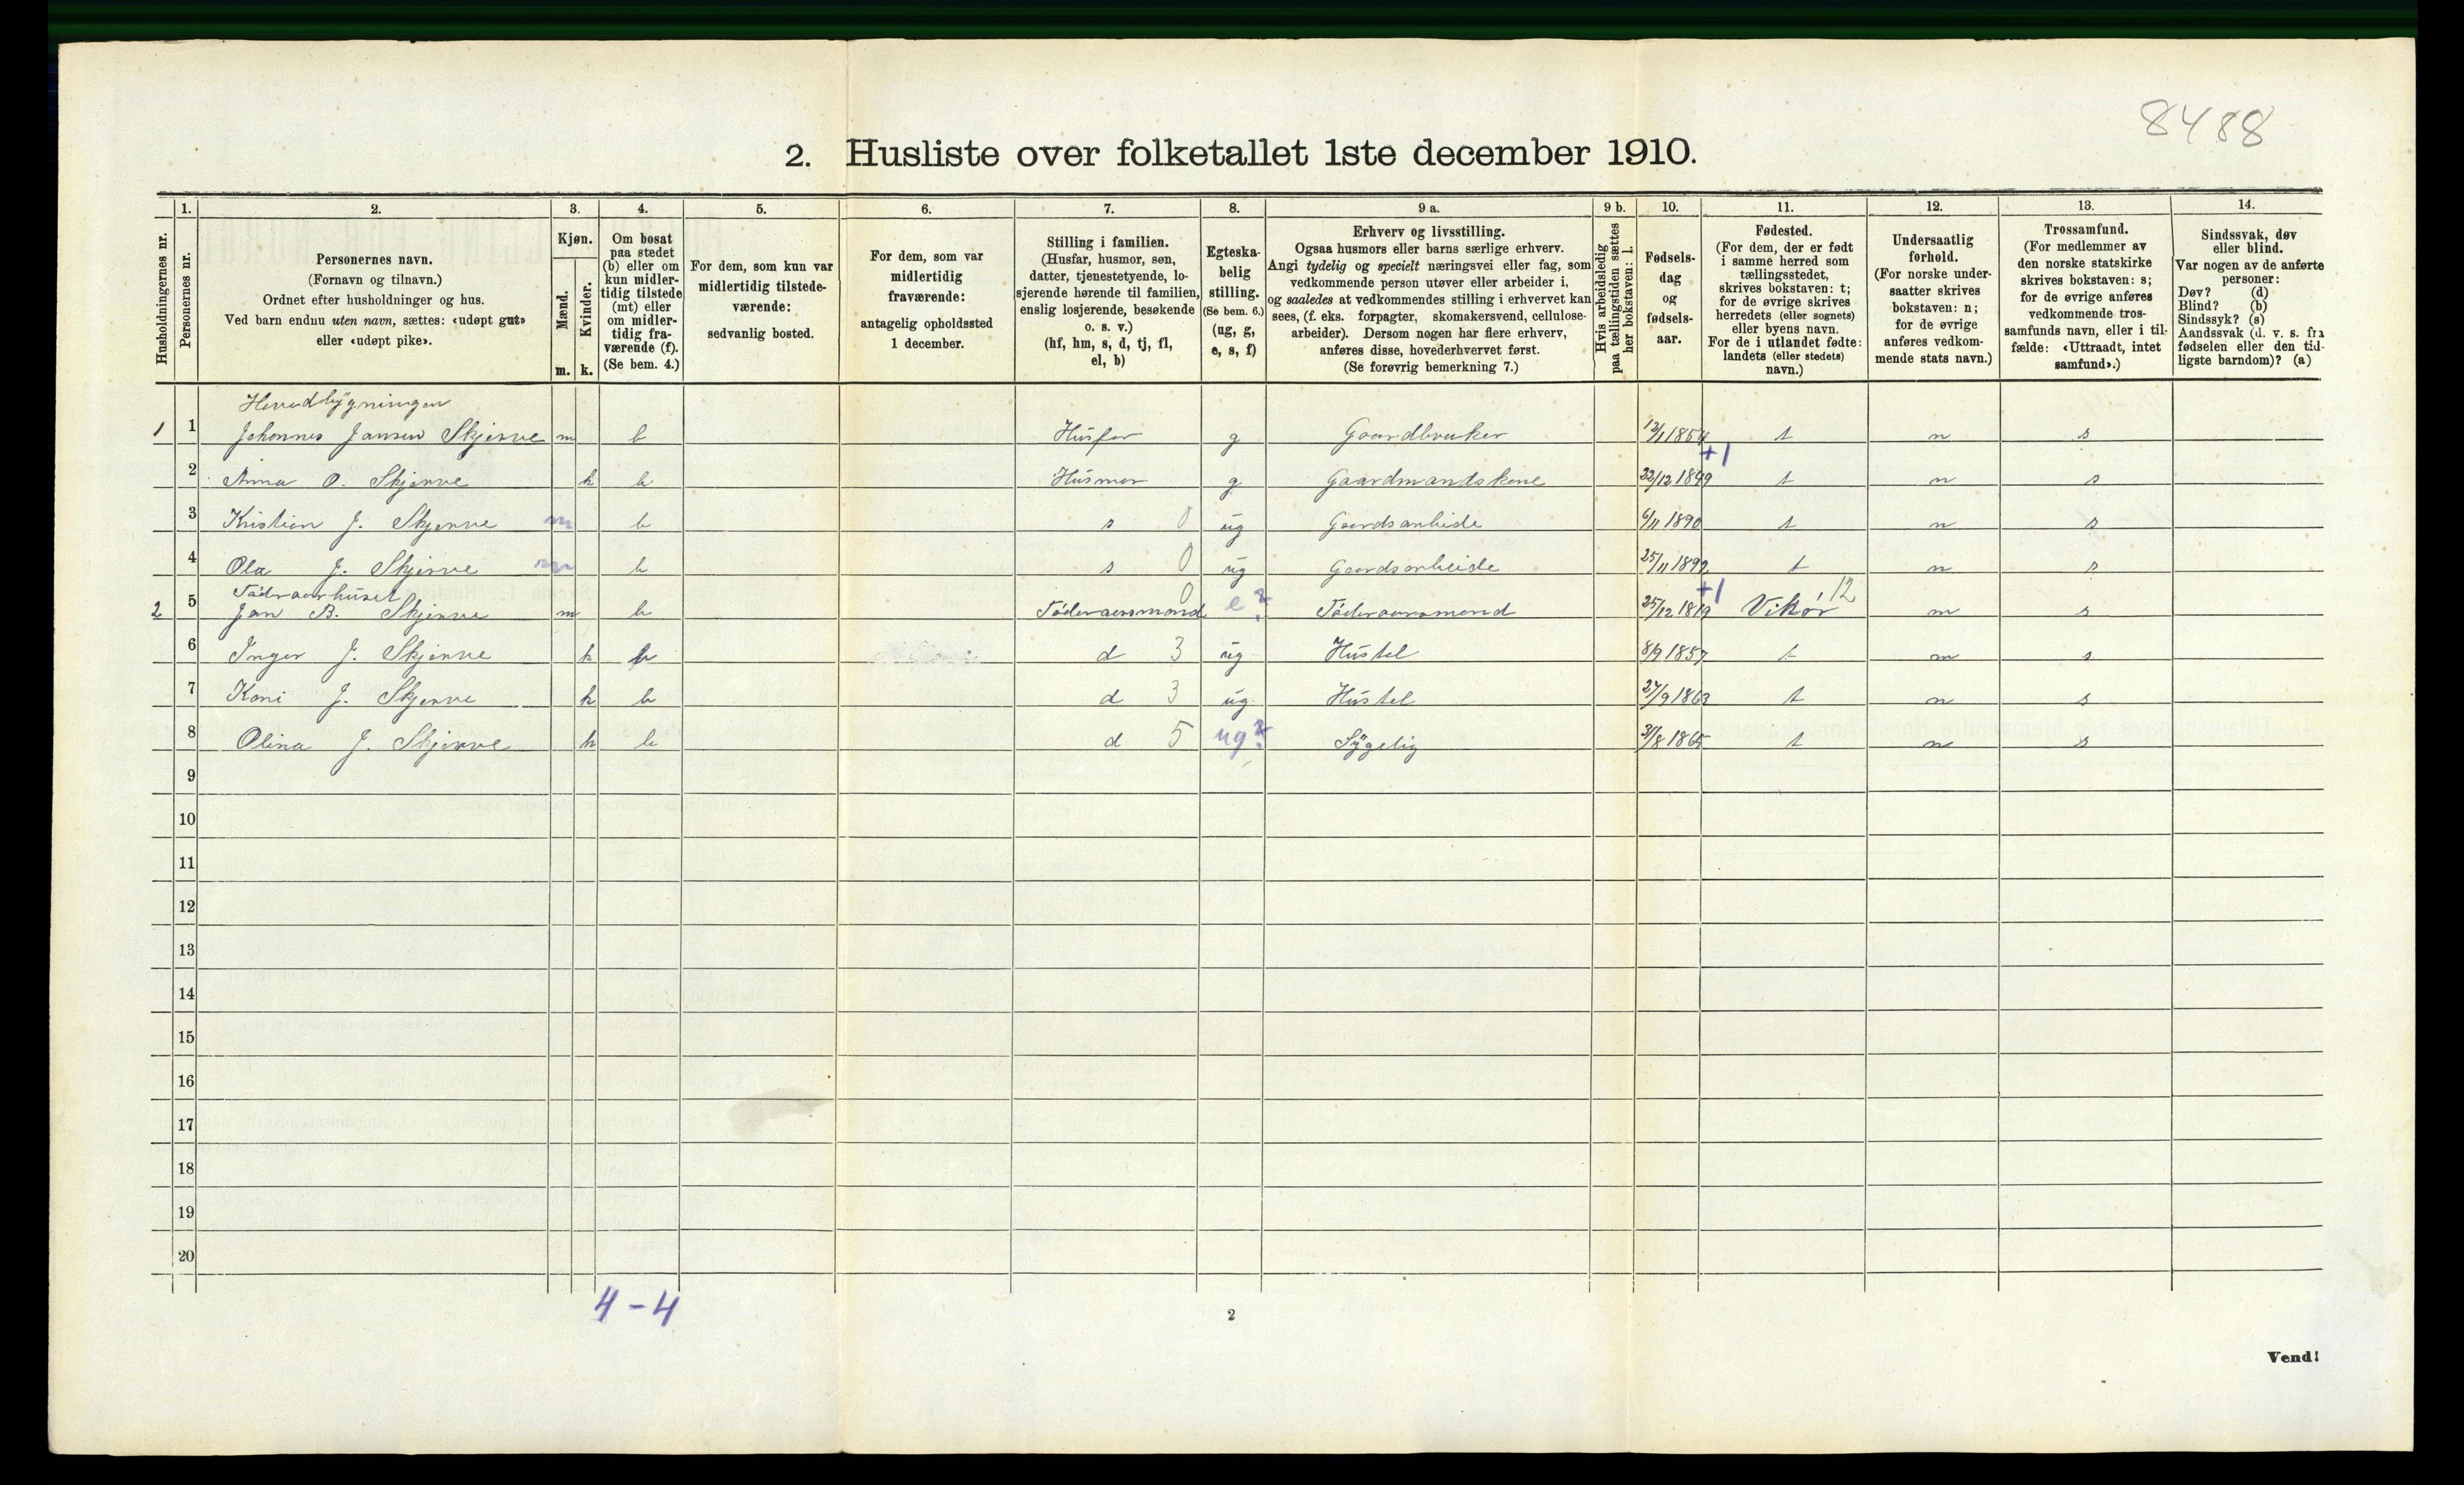 8488
2. Husliste over folketallet 1ste december 1910.
Husholdningernes nr.
1. Personernes nr.
2. Personernes navn.
(Fornavn og tilnavn.)
Ordnet efter husholdninger og hus.
Ved barn endnu uten navn, sættes: «udøpt gut»
eller «udøpt pike».
3. Kjøn.
Mænd. m.
Kvinder. k.
4. Om bosat
paa stedet
(b) eller om
kun midler-
tidig tilstede
(mt) eller
om midler-
tidig fra-
værende (f).
(Se bem. 4.)
5. For dem, som kun var
midlertidig tilstede-
værende:
sedvanlig bosted.
6. For dem, som var
midlertidig
fraværende:
antagelig opholdssted
1 december.
7. Stilling i familien.
(Husfar, husmor, søn,
datter, tjenestetyende, lo-
sjerende hørende til familien,
enslig losjerende, besøkende
o. s. v.)
(hf, hm, s, d, tj, fl,
el, b)
8. Egteska-
belig
stilling.
(Se bem. 6.)
(ug, g,
e, s, f)
9 a. Erhverv og livsstilling.
Ogsaa husmors eller barns særlige erhverv.
Angi tydelig og specielt næringsvei eller fag, som
vedkommende person utøver eller arbeider i,
og saaledes at vedkommendes stilling i erhvervet kan
sees, (f. eks. forpagter, skomakersvend, cellulose-
arbeider). Dersom nogen har flere erhverv,
anføres disse, hovederhvervet først.
(Se forøvrig bemerkning 7.)
9 b. Hvis arbeidsledig
paa tællingstiden sættes
her bokstaven: l.
10. Fødsels-
dag
og
fødsels-
aar.
11. Fødested.
(For dem, der er født
i samme herred som
tællingsstedet,
skrives bokstaven: t;
for de øvrige skrives
herredets (eller sognets)
eller byens navn.
For de i utlandet fødte:
landets (eller stedets)
navn.)
12. Undersaatlig
forhold.
(For norske under-
saatter skrives
bokstaven: n;
for de øvrige
anføres vedkom-
mende stats navn.)
13. Trossamfund.
(For medlemmer av
den norske statskirke
skrives bokstaven: s;
for de øvrige anføres
vedkommende tros-
samfunds navn, eller i til-
fælde: «Uttraadt, intet
samfund».)
14. Sindssvak, døv
eller blind.
Var nogen av de anførte
personer:
Døv? (d)
Blind? (b)
Sindssyk? (s)
Aandssvak (d. v. s. fra
fødselen eller den tid-
ligste barndom)? (a)
Hovedbygningen
1 1 Johannes Jansen Skjerve m b Husfar g Gaardbruker 13/1 1854 t n s
+1
2 Anna O. Skjerve k b Husmor g Gaardmandskone 22/12 1849 t n s
3 Kristien J. Skjerve m b s 0 ug Gaardsarbeide 6/11 1890 t n s
4 Ola J. Skjerve m b s 0 ug Gaardsarbeide 25/11 1892 t n s
Føderaadshuset
+1
2 5 Jan B. Skjerve m b Føderaadsmand 0 e? Føderaadsmand 25/12 1819 Vikør 12 n s
6 Inger J. Skjerve k b d 3 ug Hustel 8/9 1857 t n s
7 Kari J. Skjerve k b d 3 ug Hustel 27/9 1863 t n s
8 Olina J. Skjerve k b d 5 ug? Sygelig 31/8 1865 t n s
9
10
11
12
13
14
15
16
17
18
19
20
4-4
2
Vend!